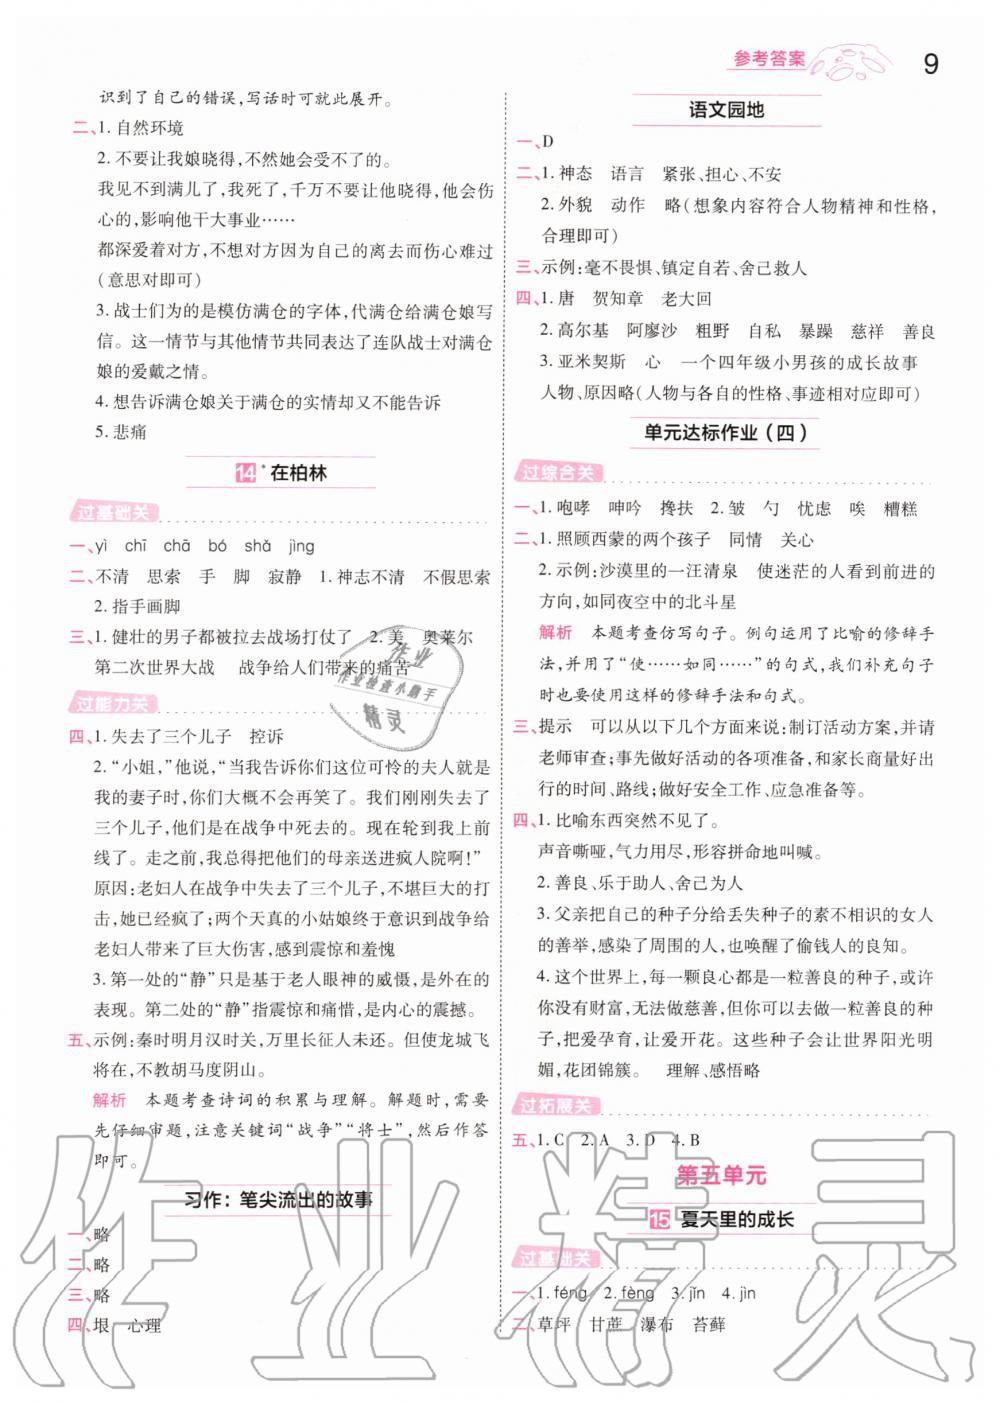 参考答案 9
识到了自己的错误,写话时可就此展开。
二、1. 自然环境
2. 不要让我娘晓得,不然她会受不了的。
我见不到满儿了,我死了,千万不要让他晓得,他会伤
心的,影响他干大事业……
都深爱着对方,不想对方因为自己的离去而伤心难过
(意思对即可)
3. 战士们为的是模仿满仓的字体,代满仓给满仓娘写
信。这一情节与其他情节共同表达了连队战士对满仓
娘的爱戴之情。
4. 想告诉满仓娘关于满仓的实情却又不能告诉
5. 悲痛
14* 在柏林
过基础关
一、yì chī chā bó shǎ jìng
二、不清 思索 手 脚 寂静 1. 神志不清 不假思索
2. 指手画脚
三、1. 健壮的男子都被拉去战场打仗了 2. 美 奥莱尔
第二次世界大战 战争给人们带来的痛苦
过能力关
四、1. 失去了三个儿子 控诉
2. “小姐,”他说,“当我告诉你们这位可怜的夫人就是
我的妻子时,你们大概不会再笑了。我们刚刚失去了
三个儿子,他们是在战争中死去的。现在轮到我上前
线了。走之前,我总得把他们的母亲送进疯人院啊!”
原因:老妇人在战争中失去了三个儿子,不堪巨大的打
击,她已经疯了;两个天真的小姑娘终于意识到战争给
老妇人带来了巨大伤害,感到震惊和羞愧
3. 第一处的“静”只是基于老人眼神的威慑,是存在的
表现。第二处的“静”指震惊和痛惜,是内心的震撼。
五、示例:秦时明月汉时关,万里长征人未还。但使龙城飞
将在,不教胡马度阴山。
解析 本题考查诗词的积累与理解。解题时,需要
先仔细审题,注意关键词“战争”“将士”,然后作答
即可。
习作：笔尖流出的故事
一、略
二、略
三、略
四、垠 心理
语文园地
一、D
二、1. 神态 语言 紧张、担心、不安
2. 外貌 动作 略(想象内容符合人物精神和性格,
合理即可)
三、示例:毫不畏惧、镇定自若、舍己救人
四、1. 唐 贺知章 老大回
2. 高尔基 阿廖沙 粗野 自私 暴躁 慈祥 善良
3. 亚米契斯 心 一个四年级小男孩的成长故事
人物、原因略(人物与各自的性格、事迹相对应即可)
单元达标作业(四)
过综合关
一、1. 咆哮 呻吟 搀扶 2. 皱 勺 忧虑 唉 糟糕
二、1. 照顾西蒙的两个孩子 同情 关心
2. 示例:沙漠里的一汪清泉 使迷茫的人看到前进的
方向,如同夜空中的北斗星
解析 本题考查仿写句子。例句运用了比喻的修辞手
法,并运用了“使……如同……”的句式,我们补充句子
时也要使用这样的修辞手法和句式。
三、提示 可以从以下几个方面来说:制订活动方案,并请
老师审查;事先做好活动的各项准备,和家长商量好出
行的时间、路线;做好安全工作、应急准备等。
四、1. 比喻东西突然不见了。
声音嘶哑,气力用尽,形容拼命地叫喊。
2. 善良、乐于助人、舍己为人
3. 父亲把自己的种子分给丢失种子的素不相识的女人
的善举,感染了周围的人,也唤醒了偷钱人的良知。
4. 这个世界上,每一颗良心都是一粒善良的种子,或许
你没有财富,无法做慈善,但你可以去做一粒善良的种
子,把爱孕育,让爱开花。这些种子会让世界阳光明
媚,花团锦簇。 理解、感悟略
过拓展关
五、1. C 2. A 3. D 4. B
第五单元
15 夏天里的成长
过基础关
一、1. féng 2. fèng 3. jǐn 4. jìn
二、草坪 甘蔗 瀑布 苔藓
作业
作业检查小助手
精灵
作业精灵